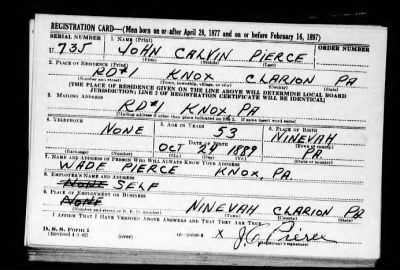 REGISTRATION CARD—(Men born on or after April 28, 1877 and on or before February 16, 1897)
SERIAL NUMBER 1. NAME (Print) ORDER NUMBER
U. 735 JOHN CALVIN PIERCE
(First) (Middle) (Last)
2. PLACE OF RESIDENCE (Print)
RD#1 KNOX CLARION PA
(Number and street) (Town, township, village, or city) (County) (State)
[THE PLACE OF RESIDENCE GIVEN ON THE LINE ABOVE WILL DETERMINE LOCAL BOARD
JURISDICTION; LINE 2 OF REGISTRATION CERTIFICATE WILL BE IDENTICAL]
3. MAILING ADDRESS
RD#1 KNOX PA
[Mailing address if other than place indicated on line 2. If same insert word same]
4. TELEPHONE 5. AGE IN YEARS 6. PLACE OF BIRTH
NONE 53 NINEVAH
DATE OF BIRTH (Town or county)
OCT 24 1889 PA
(Exchange) (Number) (Mo.) (Day) (Yr.) (State or country)
7. NAME AND ADDRESS OF PERSON WHO WILL ALWAYS KNOW YOUR ADDRESS
WADE PIERCE KNOX, PA.
8. EMPLOYER'S NAME AND ADDRESS
NONE SELF
9. PLACE OF EMPLOYMENT OR BUSINESS
NONE NINEVAH CLARION PA
(Number and street or R. F. D. number) (Town) (County) (State)
I AFFIRM THAT I HAVE VERIFIED ABOVE ANSWERS AND THAT THEY ARE TRUE.
D. S. S. Form 1
(Revised 4-1-42) (over) X J C Pierce
(Registrant's signature)